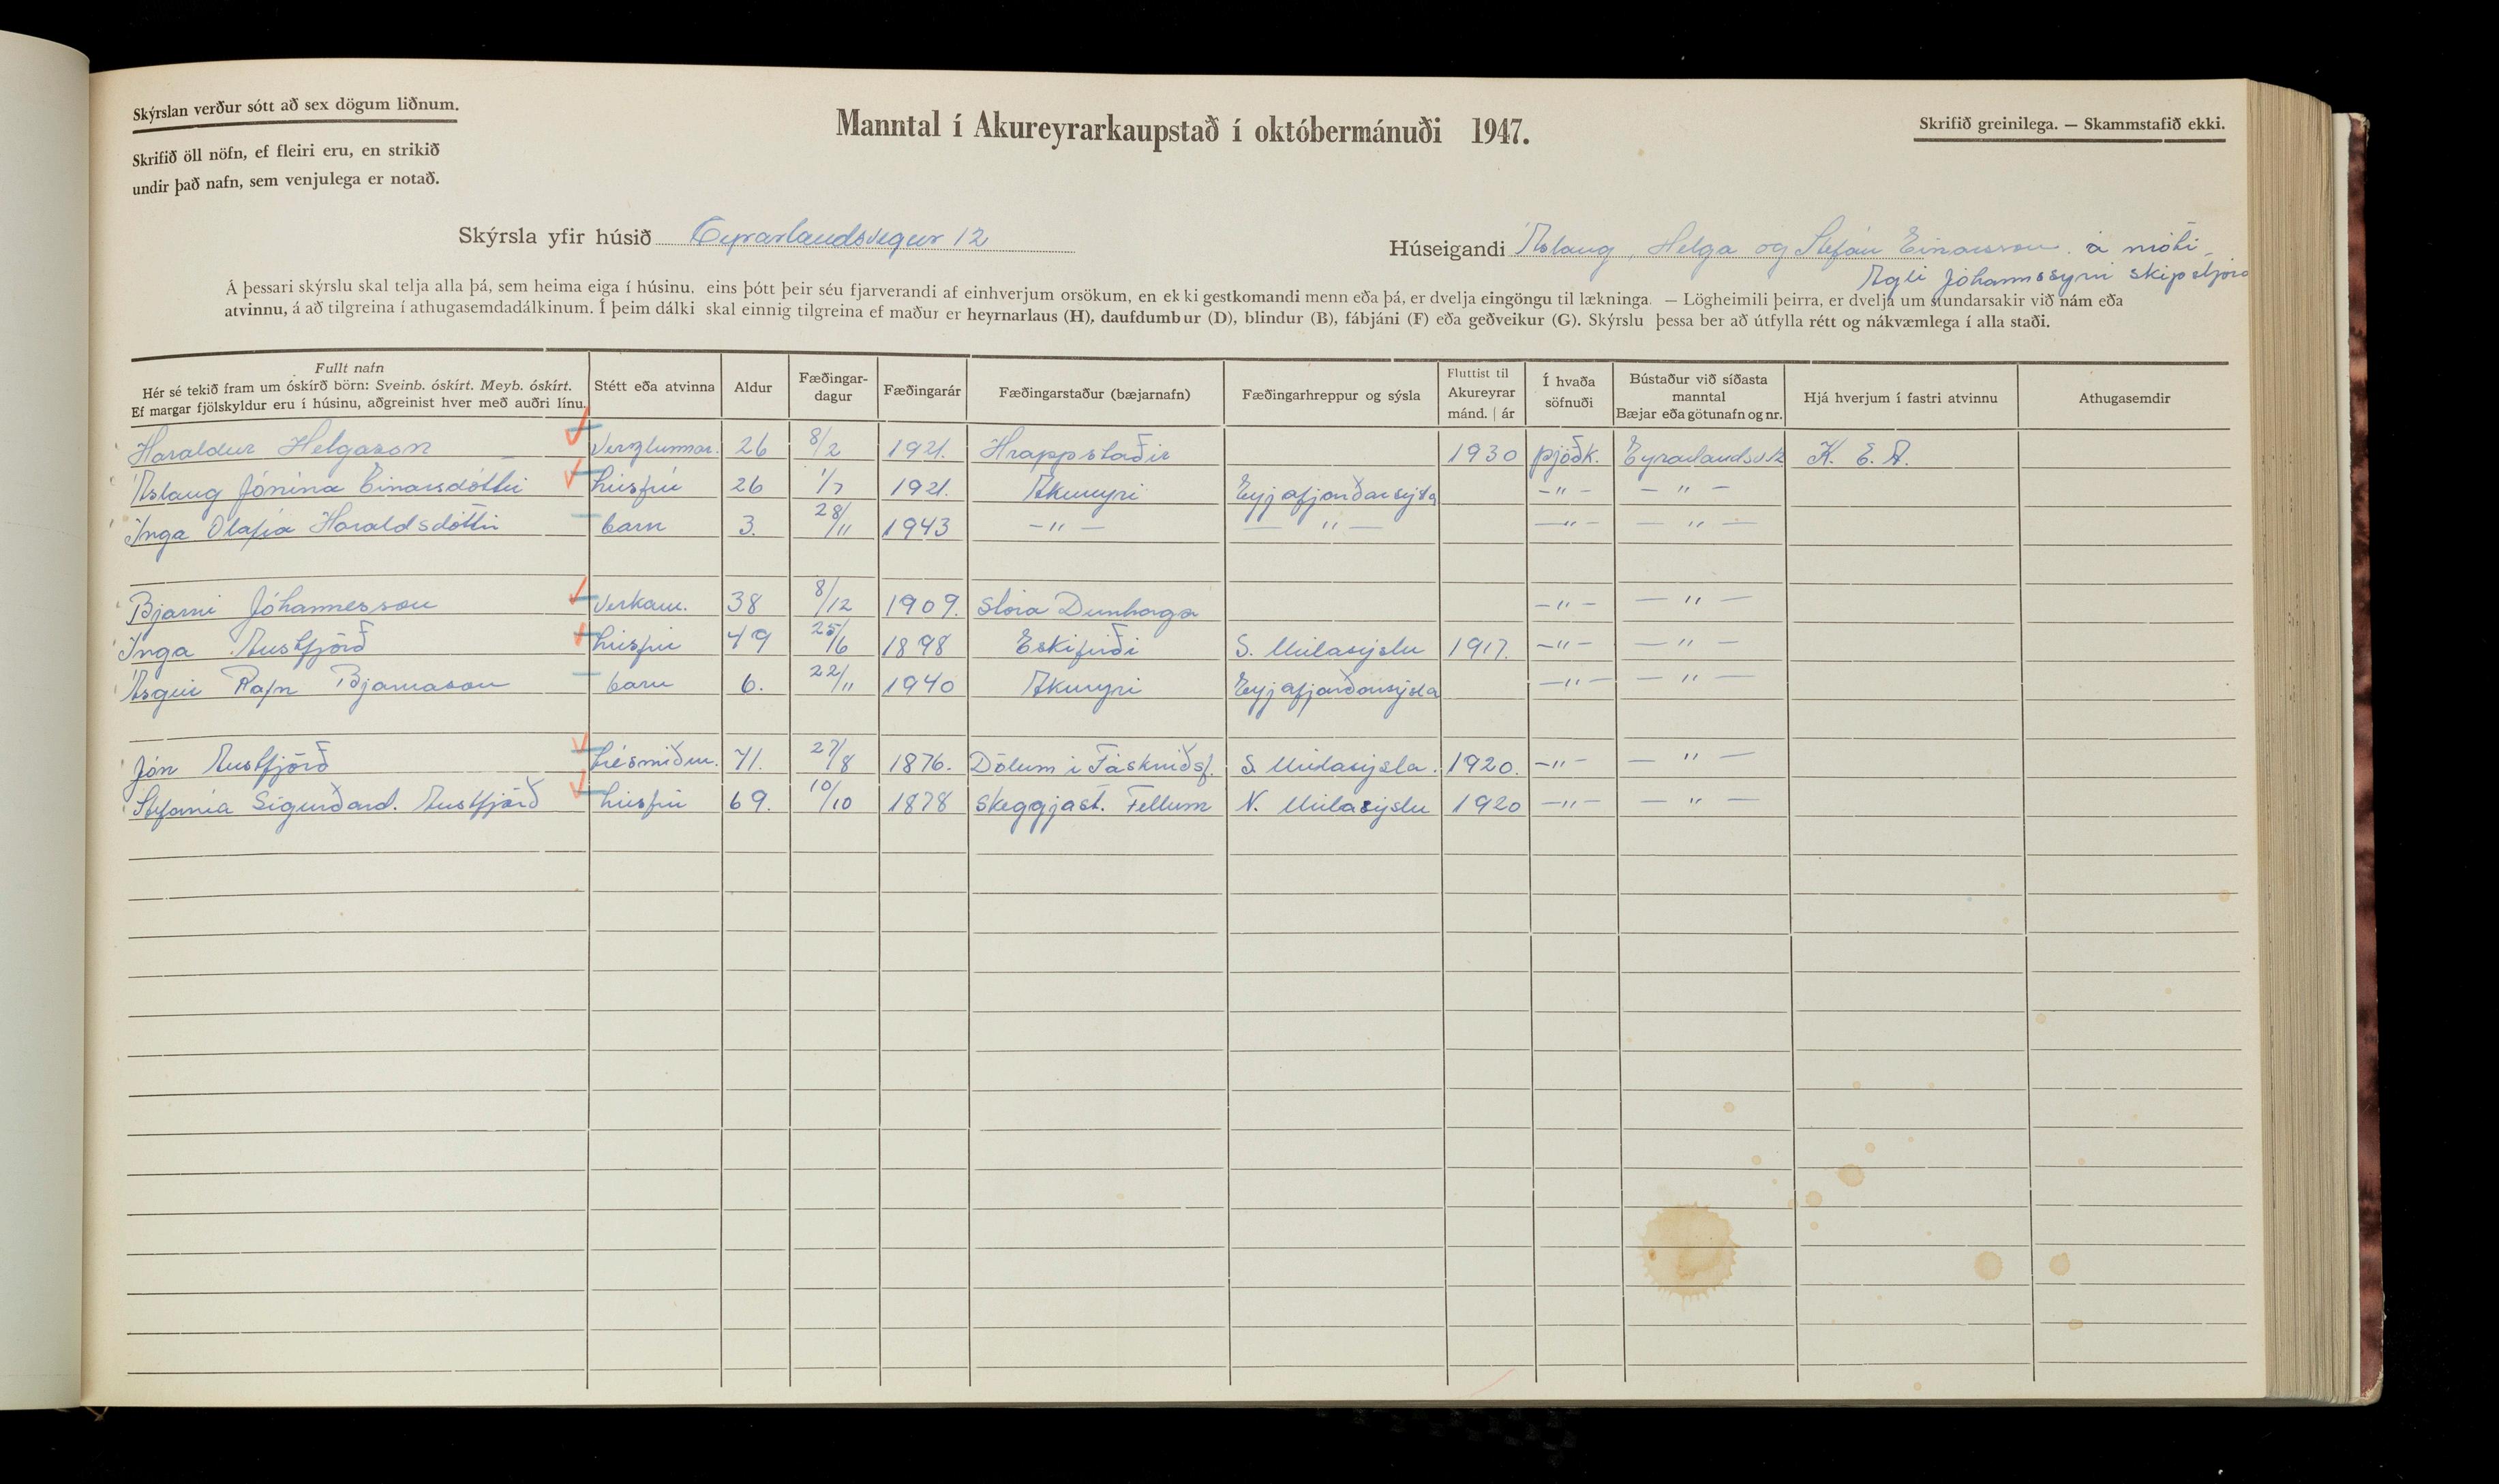 Skýrslan verður sótt að sex dögum liðnum.
Skrifið öll nöfn, ef fleiri eru, en strikið
undir það nafn, sem venjulega er notað.
Manntal í Akureyrarkaupstað í októbermánuði 1947.
Skrifið greinilega. — Skammstafið ekki.
Skýrsla yfir húsið Eyrarlandsvegur 12
Húseigandi Áslaug, Helga og Stefán Einarsson. á móti
Agli Jóhannssyni skipstjóra
Á þessari skýrslu skal telja alla þá, sem heima eiga í húsinu, eins þótt þeir séu fjarverandi af einhverjum orsökum, en ekki gestkomandi menn eða þá, er dvelja eingöngu til lækninga. — Lögheimili þeirra, er dvelja um stundarsakir við nám eða
atvinnu, á að tilgreina í athugasemdadálkinum. Í þeim dálki skal einnig tilgreina ef maður er heyrnarlaus (H), daufdumbur (D), blindur (B), fábjáni (F) eða geðveikur (G). Skýrslu þessa ber að útfylla rétt og nákvæmlega í alla staði.
Fullt nafn
Hér sé tekið fram um óskírð börn: Sveinb. óskírt. Meyb. óskírt.
Ef margar fjölskyldur eru í húsinu, aðgreinist hver með auðri línu.
Stétt eða atvinna
Aldur
Fæðingar-
dagur
Fæðingarár
Fæðingarstaður (bæjarnafn)
Fæðingarhreppur og sýsla
Fluttist til
Akureyrar
mánd. | ár
Í hvaða
söfnuði
Bústaður við síðasta
manntal
Bæjar eða götunafn og nr.
Hjá hverjum í fastri atvinnu
Athugasemdir
Haraldur Helgason Verzlunmar. 26 8/2 1921. Hrappstaðir 1930 þjóðk. Eyrarlandsv.12 K. E. A.
Áslaug Jónína Einarsdóttir húsfrú 26 1/7 1921. Akureyri Eyjafjarðarsýsla -"- - " -
Inga Ólafía Haraldsdóttir barn 3. 28/11 1943 -"- - " - -"- - " -
Bjarni Jóhannesson verkam. 38 8/12 1909. Stóra Dunhaga -"- - " -
Inga Austfjörð húsfrú 49 25/6 1898 Eskifirði S. Múlasýslu 1917. -"- - " -
Ásgeir Rafn Bjarnason barn 6. 22/11 1940 Akureyri Eyjafjarðarsýsla -"- - " -
Jón Austfjörð trésmiður. 71. 27/8 1876. Dölum í Fáskrúðsf. S. Múlasýsla. 1920. -"- - " -
Stefanía Sigurðard. Austfjörð húsfrú 69. 10/10 1878 Skeggjast. Fellum N. Múlasýslu 1920 -"- - " -